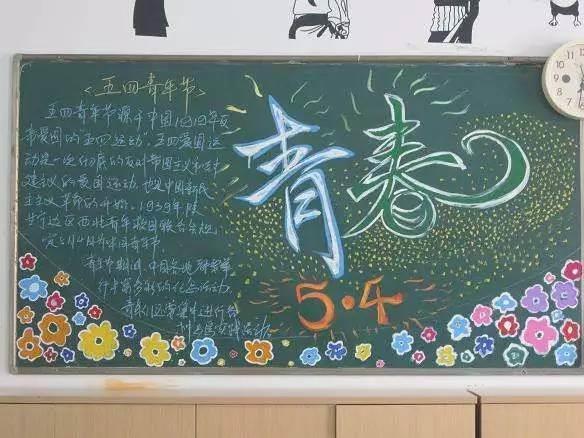 <五四青年节>
五四青年节源于中国1919年反
帝爱国的"五四运动"，五四爱国运
动是一次彻底的反对帝国主义和封
建主义的爱国运动，也是中国新民
主主义革命的开始。1939年，陕
甘宁边区西北青年救国联合会规
定5月4日为中国青年节
青年节期间，中国各地都要举
行丰富多彩的纪念活动，
青年们还要集中进行各
种社会实践活动
青春
5·4